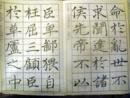 命於亂世不
求聞達於諸
侯先帝不以
臣卑鄙猥自
枉屈三顧臣
於草廬之中